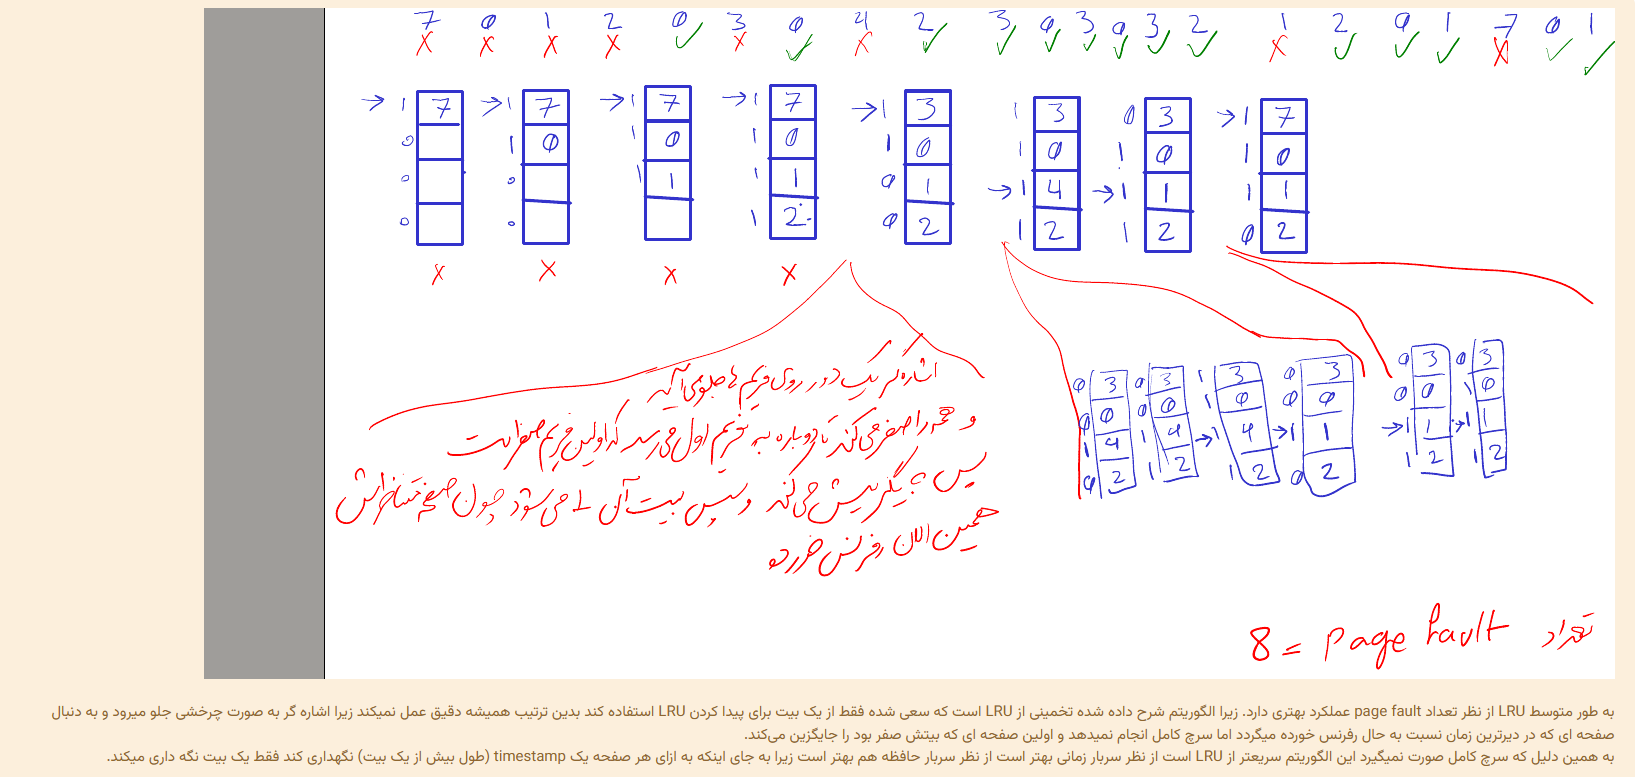 7 0 1 2 0 3 0 4 2 3 0 3 0 3 2 1 2 0 1 7 0 1
x x x x ✓ x ✓ x ✓ ✓ ✓ ✓ ✓ ✓ ✓ x ✓ ✓ ✓ x ✓ ✓
→ 1 7 → 1 7 → 1 7 → 1 7 → 1 3 1 3 0 3 → 1 7
0 1 0 1 0 1 0 1 0 1 0 1 0 1 0
0 0 1 1 1 1 0 1 → 1 4 → 1 1 1 1
0 0 1 2 0 2 1 2 1 2 0 2
x x x x
0 3 0 3 1 3 0 3 0 3 0 3
0 0 0 0 1 0 0 0 0 0 1 0
1 4 1 4 → 1 4 → 1 1 → 1 1 → 1 1
0 2 1 2 1 2 0 2 1 2 1 2
اشاره گر یک دور روی فریم ها جلو می آید
و همه را صفر می کند تا دوباره به فریم اول می رسد که اولین فریم صفر است
پس جایگزینش می کند و سپس بیت آن 1 می شود چون صفحه متناظرش
همین الان رفرنس خورده
تعداد page fault = 8
به طور متوسط LRU از نظر تعداد page fault عملکرد بهتری دارد. زیرا الگوریتم شرح داده شده تخمینی از LRU است که سعی شده فقط از یک بیت برای پیدا کردن LRU استفاده کند بدین ترتیب همیشه دقیق عمل نمیکند زیرا اشاره گر به صورت چرخشی جلو میرود و به دنبال
صفحه ای که در دیرترین زمان نسبت به حال رفرنس خورده میگردد اما سرچ کامل انجام نمیدهد و اولین صفحه ای که بیتش صفر بود را جایگزین می‌کند.
به همین دلیل که سرچ کامل صورت نمیگیرد این الگوریتم سریعتر از LRU است از نظر سربار زمانی بهتر است از نظر سربار حافظه هم بهتر است زیرا به جای اینکه به ازای هر صفحه یک timestamp (طول بیش از یک بیت) نگهداری کند فقط یک بیت نگه داری میکند.